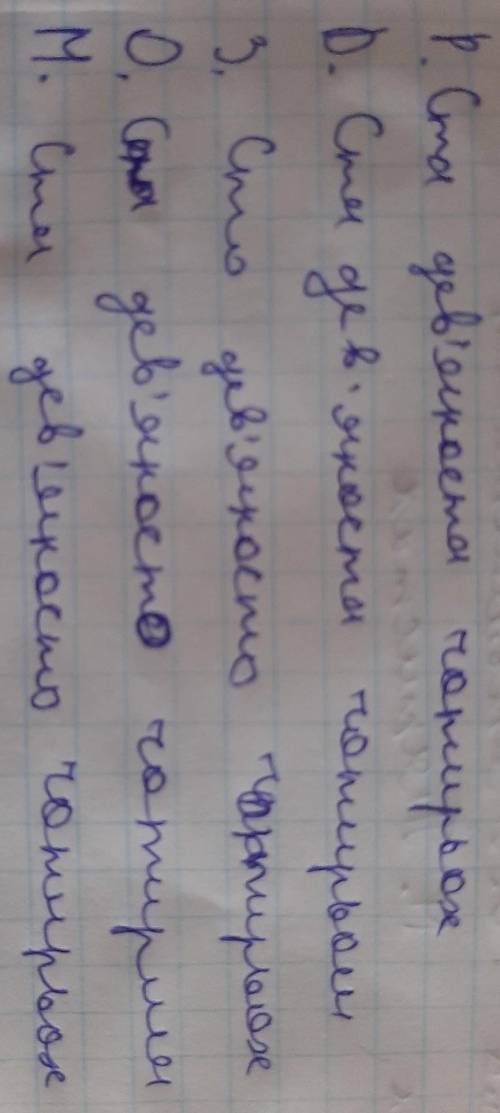 Р. Ста дев'яноста чотирьох
D. Ста дев'яноста чотирьом
З. Сто дев'яносто чотирьох
О. Ста дев'яносто чотирма
М. Ста дев'яносто чотирьох